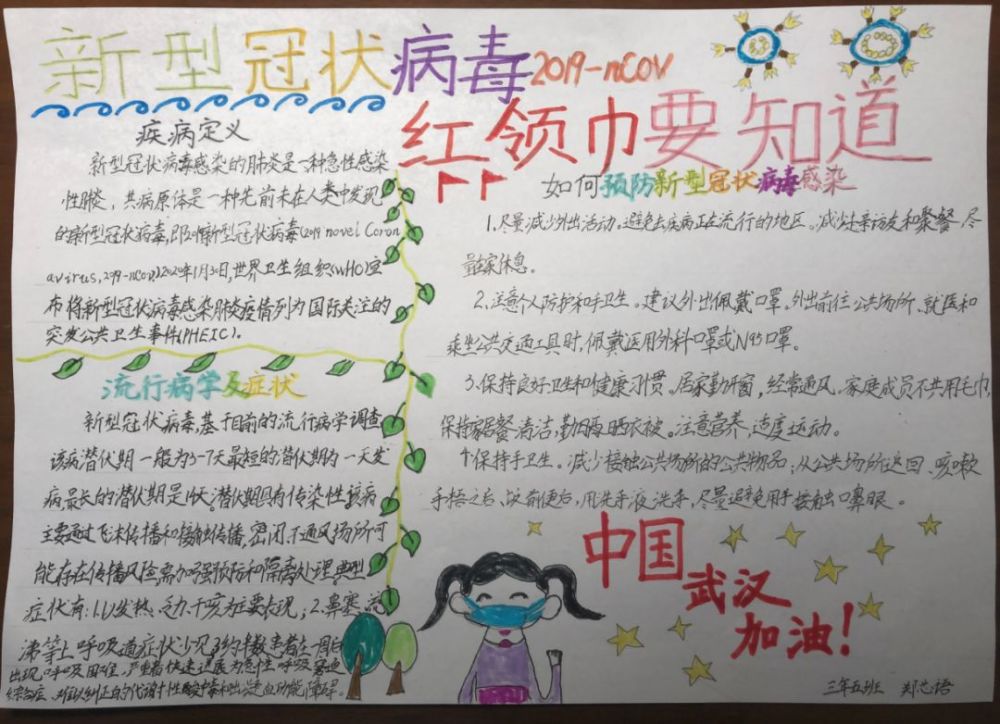 新型冠状病毒2019-nCOV
红领巾要知道
疾病定义
新型冠状病毒感染的肺炎是一种急性感染
性肺炎，其病原体是一种先前未在人类中发现
的新型冠状病毒，即新型冠状病毒(2019 novel Coron
avirus,2019-nCoV)2020年1月30日,世界卫生组织(WHO)宣
布将新型冠状病毒感染肺炎疫情列为国际关注的
突发公共卫生事件(PHEIC)。
流行病学及症状
新型冠状病毒,基于目前的流行病学调查
该病潜伏期一般为3-7天最短的潜伏期为一天发
病最长的潜伏期是14天;潜伏期具有传染性,该病
主要通过飞沫传播和接触传播,密闭不通风场所可
能存在传播风险,需加强预防和隔离处理典型
症状有:1.以发热、乏力、干咳为主要表现；2.鼻塞、流
涕等上呼吸道症状少见3约半数患者在一周后
出现呼吸困难，严重者快速进展为急性呼吸窘迫
综合征、难以纠正的代谢性酸中毒和出凝血功能障碍。
如何预防新型冠状病毒感染
1.尽量减少外出活动。避免去疾病正在流行的地区。减少走亲访友和聚餐,尽
量在家休息。
2.注意个人防护和手卫生。建议外出佩戴口罩。外出前往公共场所、就医和
乘坐公共交通工具时，佩戴医用外科口罩或N95口罩。
3.保持良好卫生和健康习惯。居家勤开窗，经常通风。家庭成员不共用毛巾，
保持家居餐清洁，勤晒衣被。注意营养，适度运动。
4保持手卫生。减少接触公共场所的公共物品；从公共场所返回、咳嗽
手捂之后、饭前便后，用洗手液洗手，尽量避免用手接触口鼻眼。
中国
武汉
加油!
三年五班